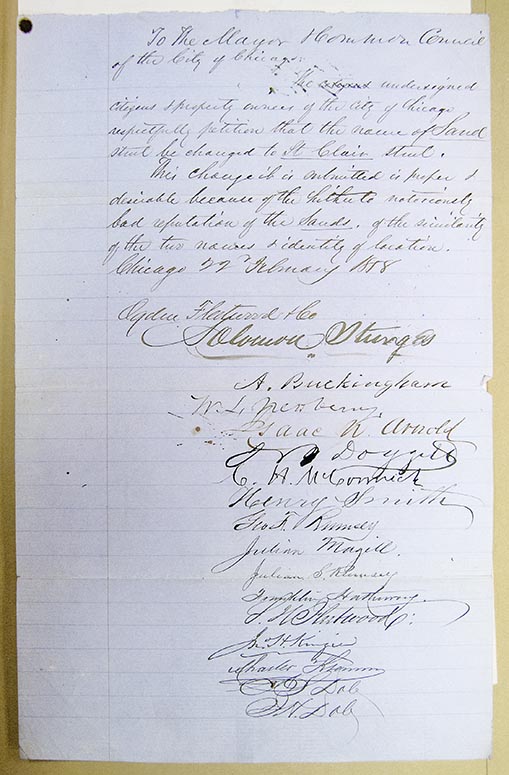 To The Mayor & Common Council
of the City of Chicago.
The undersigned
citizens & property owners of the City of Chicago
respectfully petition that the name of Sand
street be changed to St Clair street.
This change it is submitted is proper &
desirable because of the hitherto notoriously
bad reputation of the Sands, of the similarity
of the two names & identity of location.
Chicago 22d February 1858
Ogden Fleetwood & Co
Solomon Sturges
A. Buckingham
W. L. Newberry,
Isaac N. Arnold
Doggett
C. H. McCormick
Henry Smith
Geo. F. Rumsey
Julian Magill.
Julian S. Rumsey
Franklin Hathaway.
S. H. Fleetwood.
J. H. Kinzie
Charles
Dole
Dole